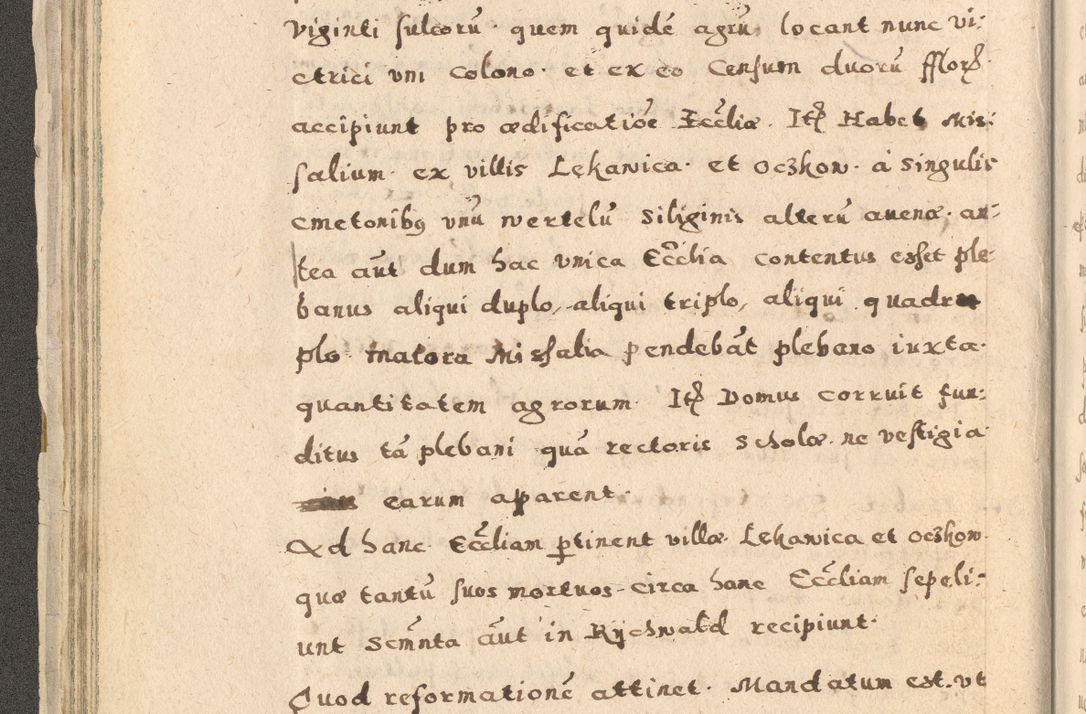 viginti sulcorū quem quidē agrū locant nunc vi:
ctrici vni colono. et ex eo Censum duorū fflor
accipiunt pro ædificatiōe Eccliæ. Itē Habet Mis:
salium. ex villis Lękawica. et Oczkow. a singulis
cmetonibꝫ vnū wertelū Siliginis alterū auenæ. an:
tea aūt dum hac vnica Ecclia contentus esset ple:
banus aliqui duplo, aliqui triplo, aliqui quadru
plo maiora Missalia pendebāt plebano iuxta
quantitatem agrorum. Itē Domus corruit fun:
ditus tā plebani quā rectoris Scholæ. ne vestigia
earum aparent.
Ad hanc Eccliam ꝑtinent villæ Lekawica et Oczkow
quæ tantū suos mortuos circa hanc Eccliam sepeli:
unt Scmnta aūt in Rychwald recipiunt.
Quod reformationē attinet. Mandatum est. vt